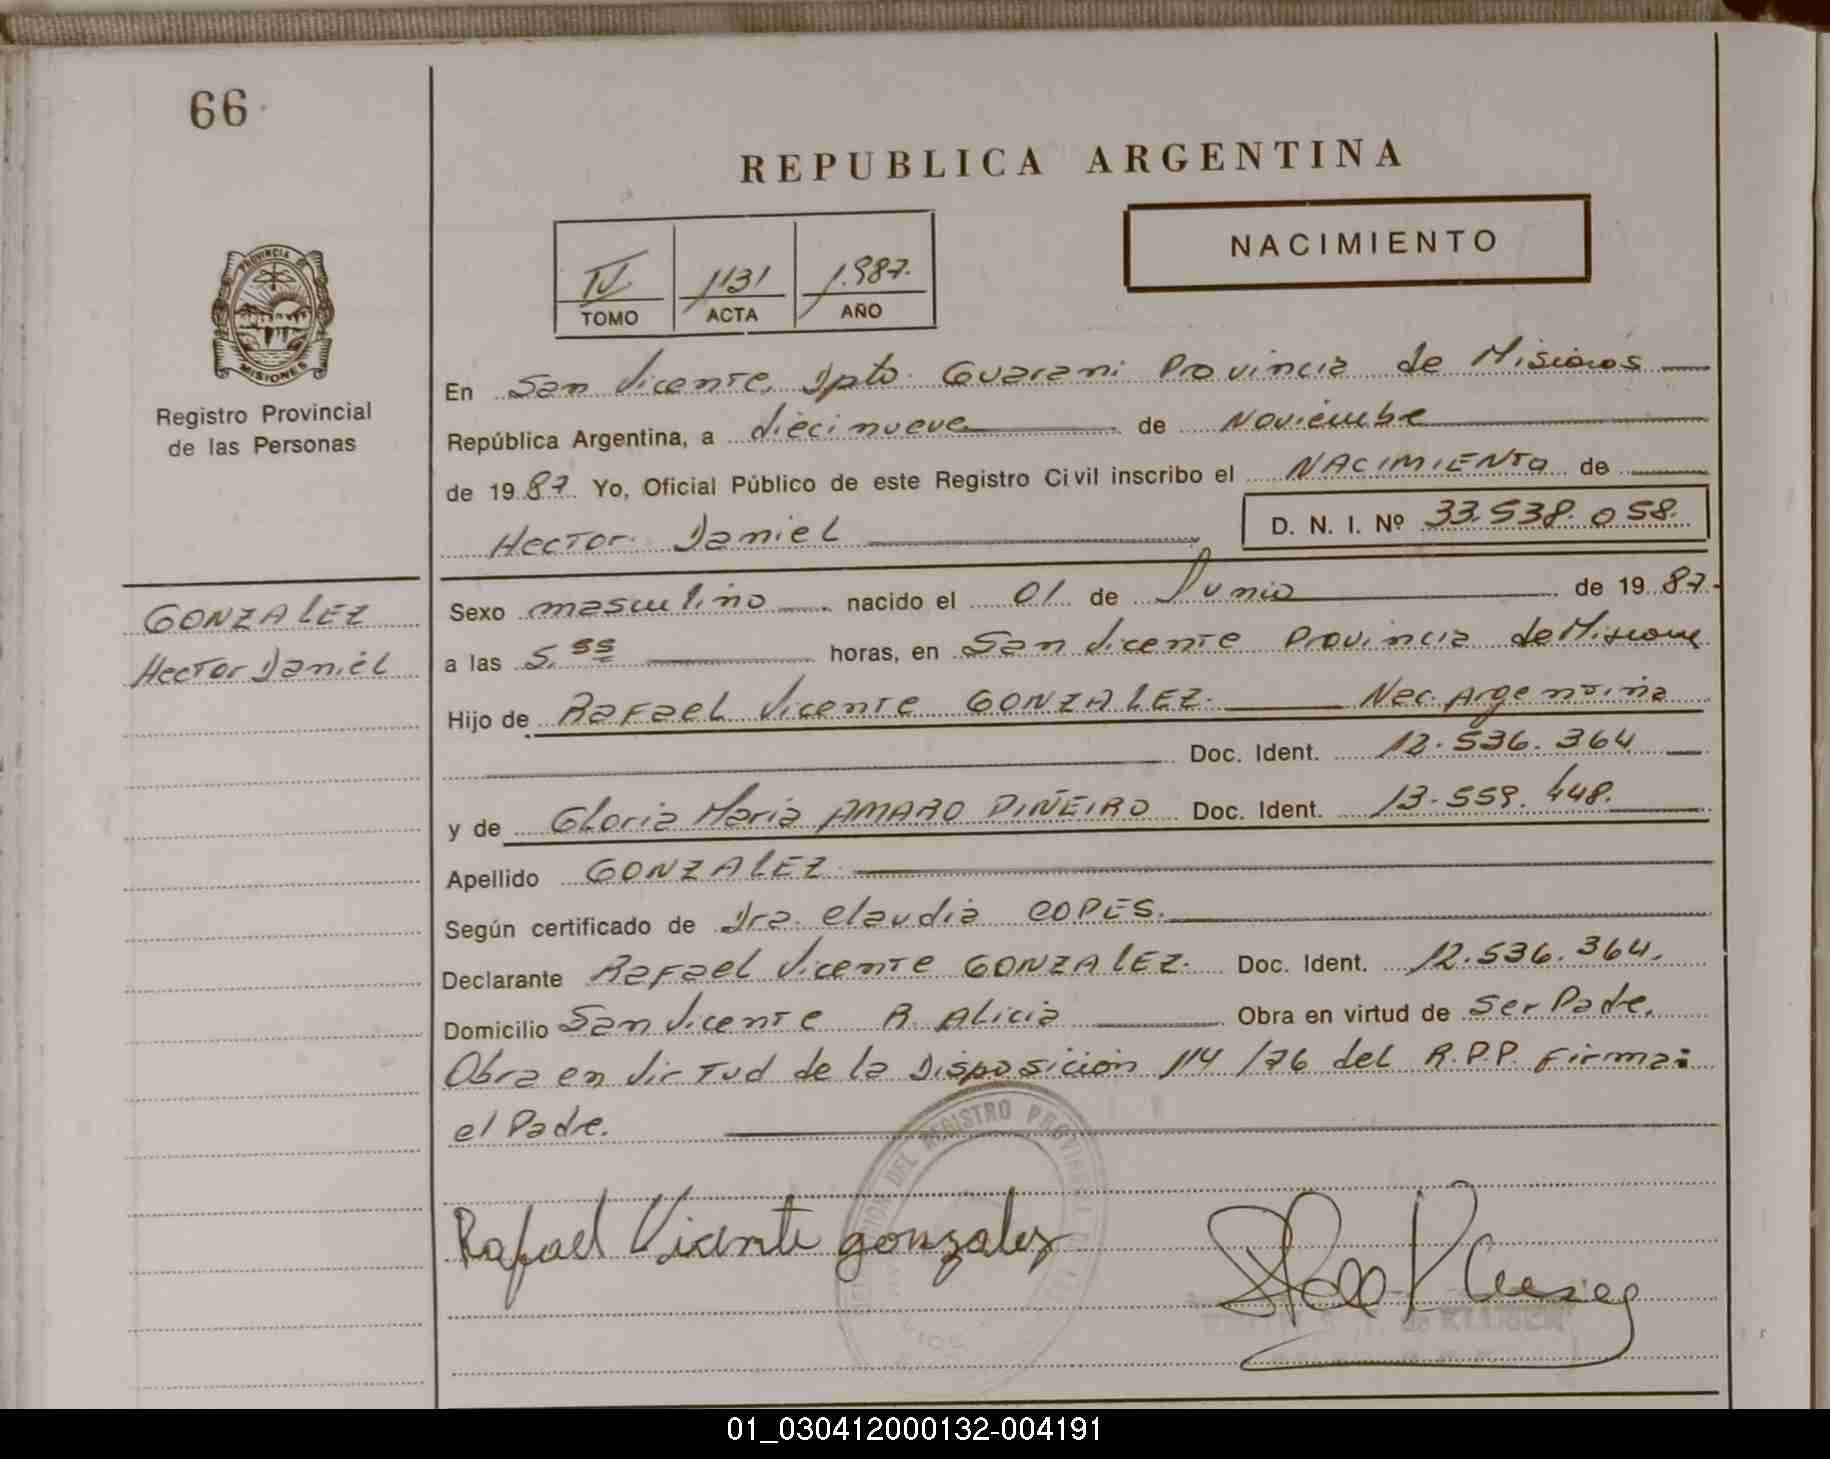 66
REPUBLICA ARGENTINA
NACIMIENTO
IV 1131 1.987.
TOMO ACTA AÑO
PROVINCIA
MISIONES
Registro Provincial
de las Personas
En San Vicente, Dpto. Guarani Provincia de Misiones
República Argentina, a diecinueve de Noviembre
de 1987. Yo, Oficial Público de este Registro Civil inscribo el NACIMIENTO de
Hector Daniel D. N. I. Nº 33.538.058.
GONZALEZ
Hector Daniel
Sexo masculino nacido el 01 de Junio de 1987.
a las 5.55 horas, en San Vicente Provincia de Misiones
Hijo de Rafael Vicente GONZALEZ. Nac. Argentina
Doc. Ident. 12.536.364
y de Gloria Maria AMARO PIÑEIRO Doc. Ident. 13.559.448.
Apellido GONZALEZ
Según certificado de Dra. Claudia COPES.
Declarante Rafael Vicente GONZALEZ. Doc. Ident. 12.536.364.
Domicilio San Vicente R. Alicia Obra en virtud de Ser Padre.
Obra en Virtud de la Disposición 114/76 del R.P.P. Firma:
el Padre.
DEL REGISTRO PROVINCIAL D
Rafael Vicente gonzalez
01_030412000132-004191